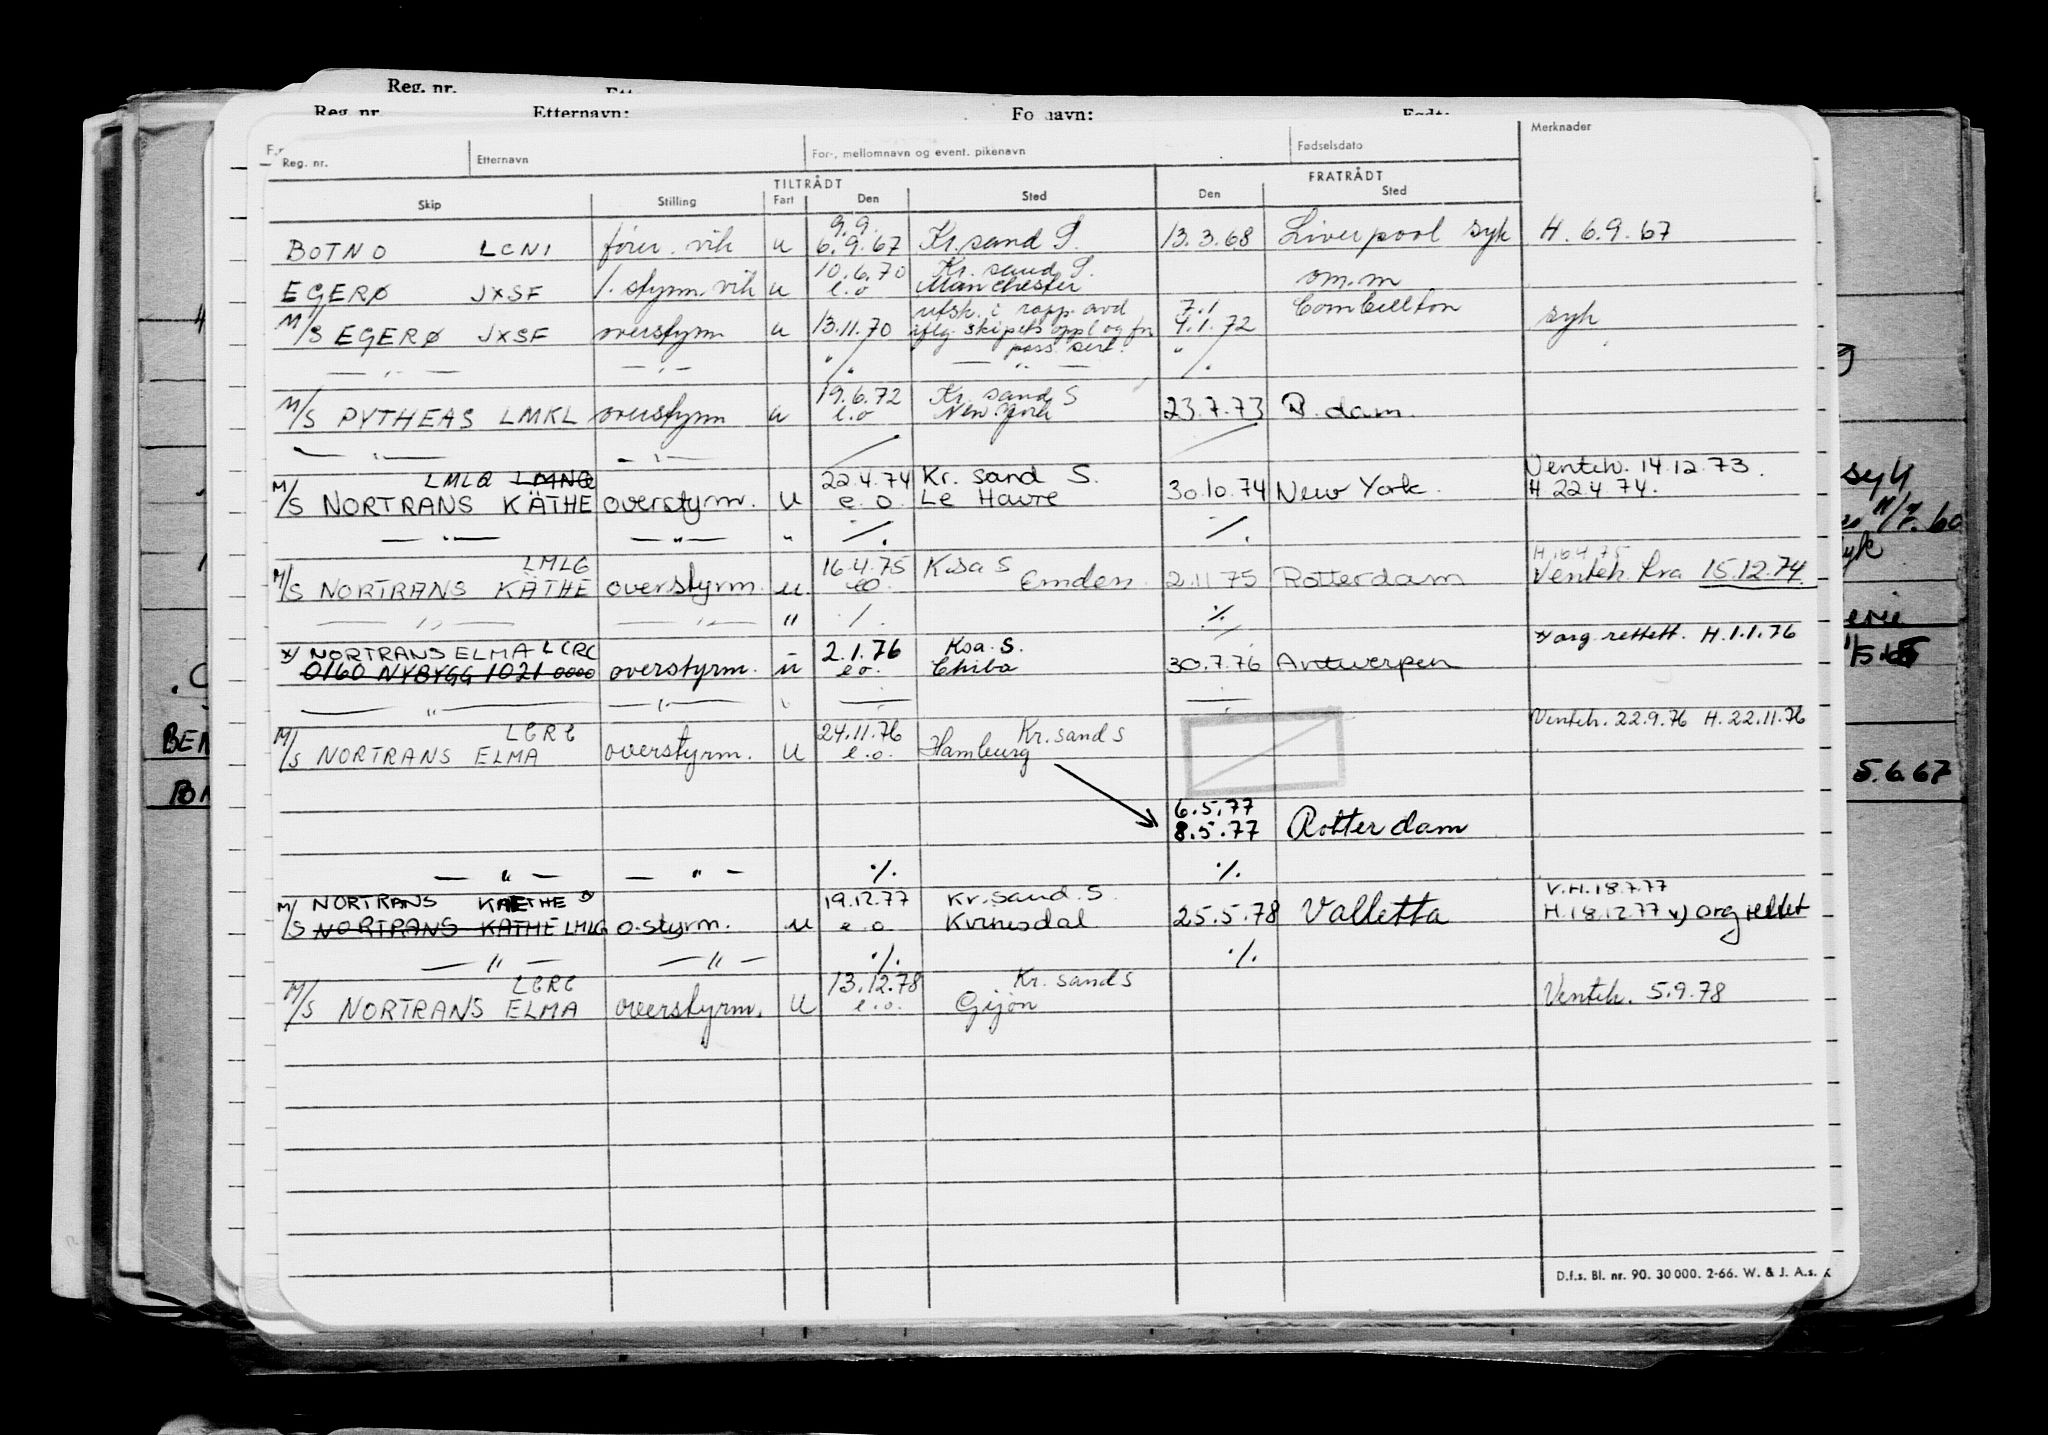 Reg. nr. Ett
Reg. nr. Etternavn: Fo navn: Født:
Reg. nr. Etternavn For-, mellomnavn og event. pikenavn Fødselsdato Merknader
TILTRÅDT FRATRÅDT
Skip Stilling Fart Den Sted Den Sted
9.9.
BOTNO LCNI fører. vik u 6.9.67 Kr.sand S. 13.3.68 Liverpool syk H. 6.9.67
10.6.70 Kr. sand S.
EGERØ JXSF 1. styrm. vik u e.o Manchester om.m
utsk. i rapp. avd 7.1
M/S EGERØ JXSF overstyrm u 13.11.70 iflg. skipets oppl og fr 4.1.72 syk
pass. serl.
— " — — " — " /. — " — " /.
19.6.72 Kr. sand S
M/S PYTHEAS LMKL overstyrm u e.o New York 23.7.73 R.dam.
— " — — " — / /
LMLQ LMNQ 22.4.74 Kr. sand S. Venteh. 14.12.73.
M/S NORTRANS KÄTHE overstyrm. u e.o. Le Havre 30.10.74 New York. H. 22.4.74.
— " — — " — " ./. ./.
LMLG 16.4.75 K.sa S H. 16.4.75
M/S NORTRANS KÄTHE overstyrm. u. eo. Emden. 2.11.75 Rotterdam Venteh. fra 15.12.74.
— " — — " — " ./. ./.
x) NORTRANS ELMA LCRC 2.1.76 Ksa. S. x) org. rettett. H.1.1.76
0160 NYBYGG 1021 0000 overstyrm. u eo. Chiba 30.7.76 Antwerpen
— " — — " — " — " — — " —
LCRC 24.11.76 Kr.sand S Venteh. 22.9.76 H. 22.11.76
M/S NORTRANS ELMA overstyrm. U e.o. Hamburg
6.5.77
8.5.77 Rotterdam
— " — — " — ./. ./.
M/ NORTRANS KAETHE x) 19.12.77 Kr.sand.S. V.H.18.7.77
S NORTRANS KÄTHE LMLG o.styrm. u e.o. Kvinesdal 25.5.78 Valletta H.18.12.77 x) org rettet
— " — — " — ./. ./.
LCRC 13.12.78 Kr. sand S
M/S NORTRANS ELMA overstyrm. U e.o. Gijon Venteh. 5.9.78
D.f.s. Bl. nr. 90. 30 000. 2-66. W. & J. A.s.
syk
60
5.6.67